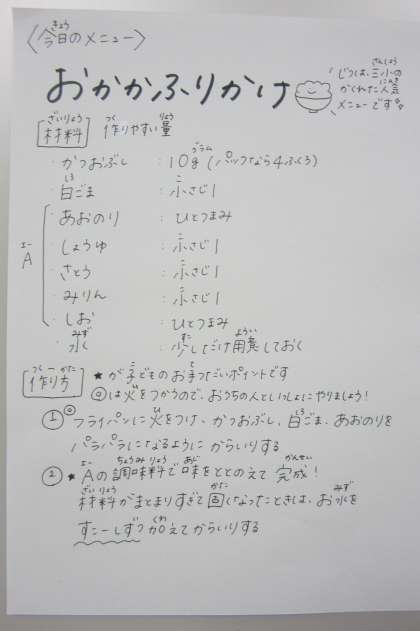 〈今日のメニュー〉
おかかふりかけ
じつは、三小の
かくれた人気
メニューです
材料 作りやすい量
・かつおぶし : 10g (パックなら4ふくろ)
・白ごま : 小さじ1
・あおのり : ひとつまみ
・しょうゆ : 小さじ1
A ・さとう : 小さじ1
・みりん : 小さじ1
・しお : ひとつまみ
・水 : 少しだけ用意しておく
作り方 ★が子どものお手つだいポイントです
◎は火をつかうので、おうちの人といっしょにやりましょう!
① ◎フライパンに火をつけ、かつおぶし、白ごま、あおのりを
パラパラになるようにからいりする
② ★Aの調味料で味をととのえて完成!
材料がまとまりすぎて固くなったときは、お水を
すこーしずつ加えてからいりする